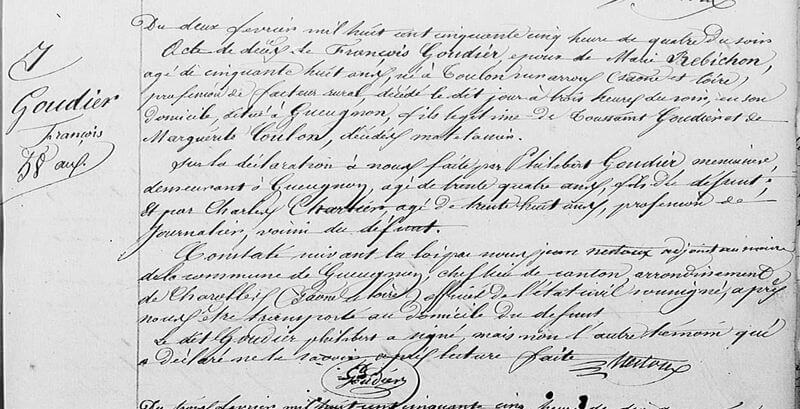 7
Goudier
François
58 ans.
Du deux fevrier mil huit cent cinquante cinq heure de quatre du soir
Acte de décès de François Goudier, epoux de Marie Rebichon,
agé de cinquante huit ans, né à Toulon sur arroux (Saone et loire),
profession de facteur rural, décédé le dit jour à trois heures du soir, en son
domicile, situé à Gueugnon, fils legitime de Toussaint Goudier et de
Marguerite Toulon, décédés
Sur la déclaration à nous faite par Philibert Goudier menuisier,
demeurant à Gueugnon, agé de trente quatre ans, fils du défunt;
Et par Charles Chartier, agé de trente huit ans, profession de
Journalier, voisin du défunt.
Constaté suivant la loi par nous jean nestoux adjoint au maire
de la commune de Gueugnon, chef lieu de canton arrondissement
de Charolles (Saone et loire) officier de l'état civil soussigné, après
nous être transporté au domicile du défunt
Le dit Goudier philibert a signé, mais non l'autre témoin qui
a déclaré ne le savoir, après lecture faite Nestoux
Goudier
Du trois fevrier mil huit cent cinquante cinq heure de